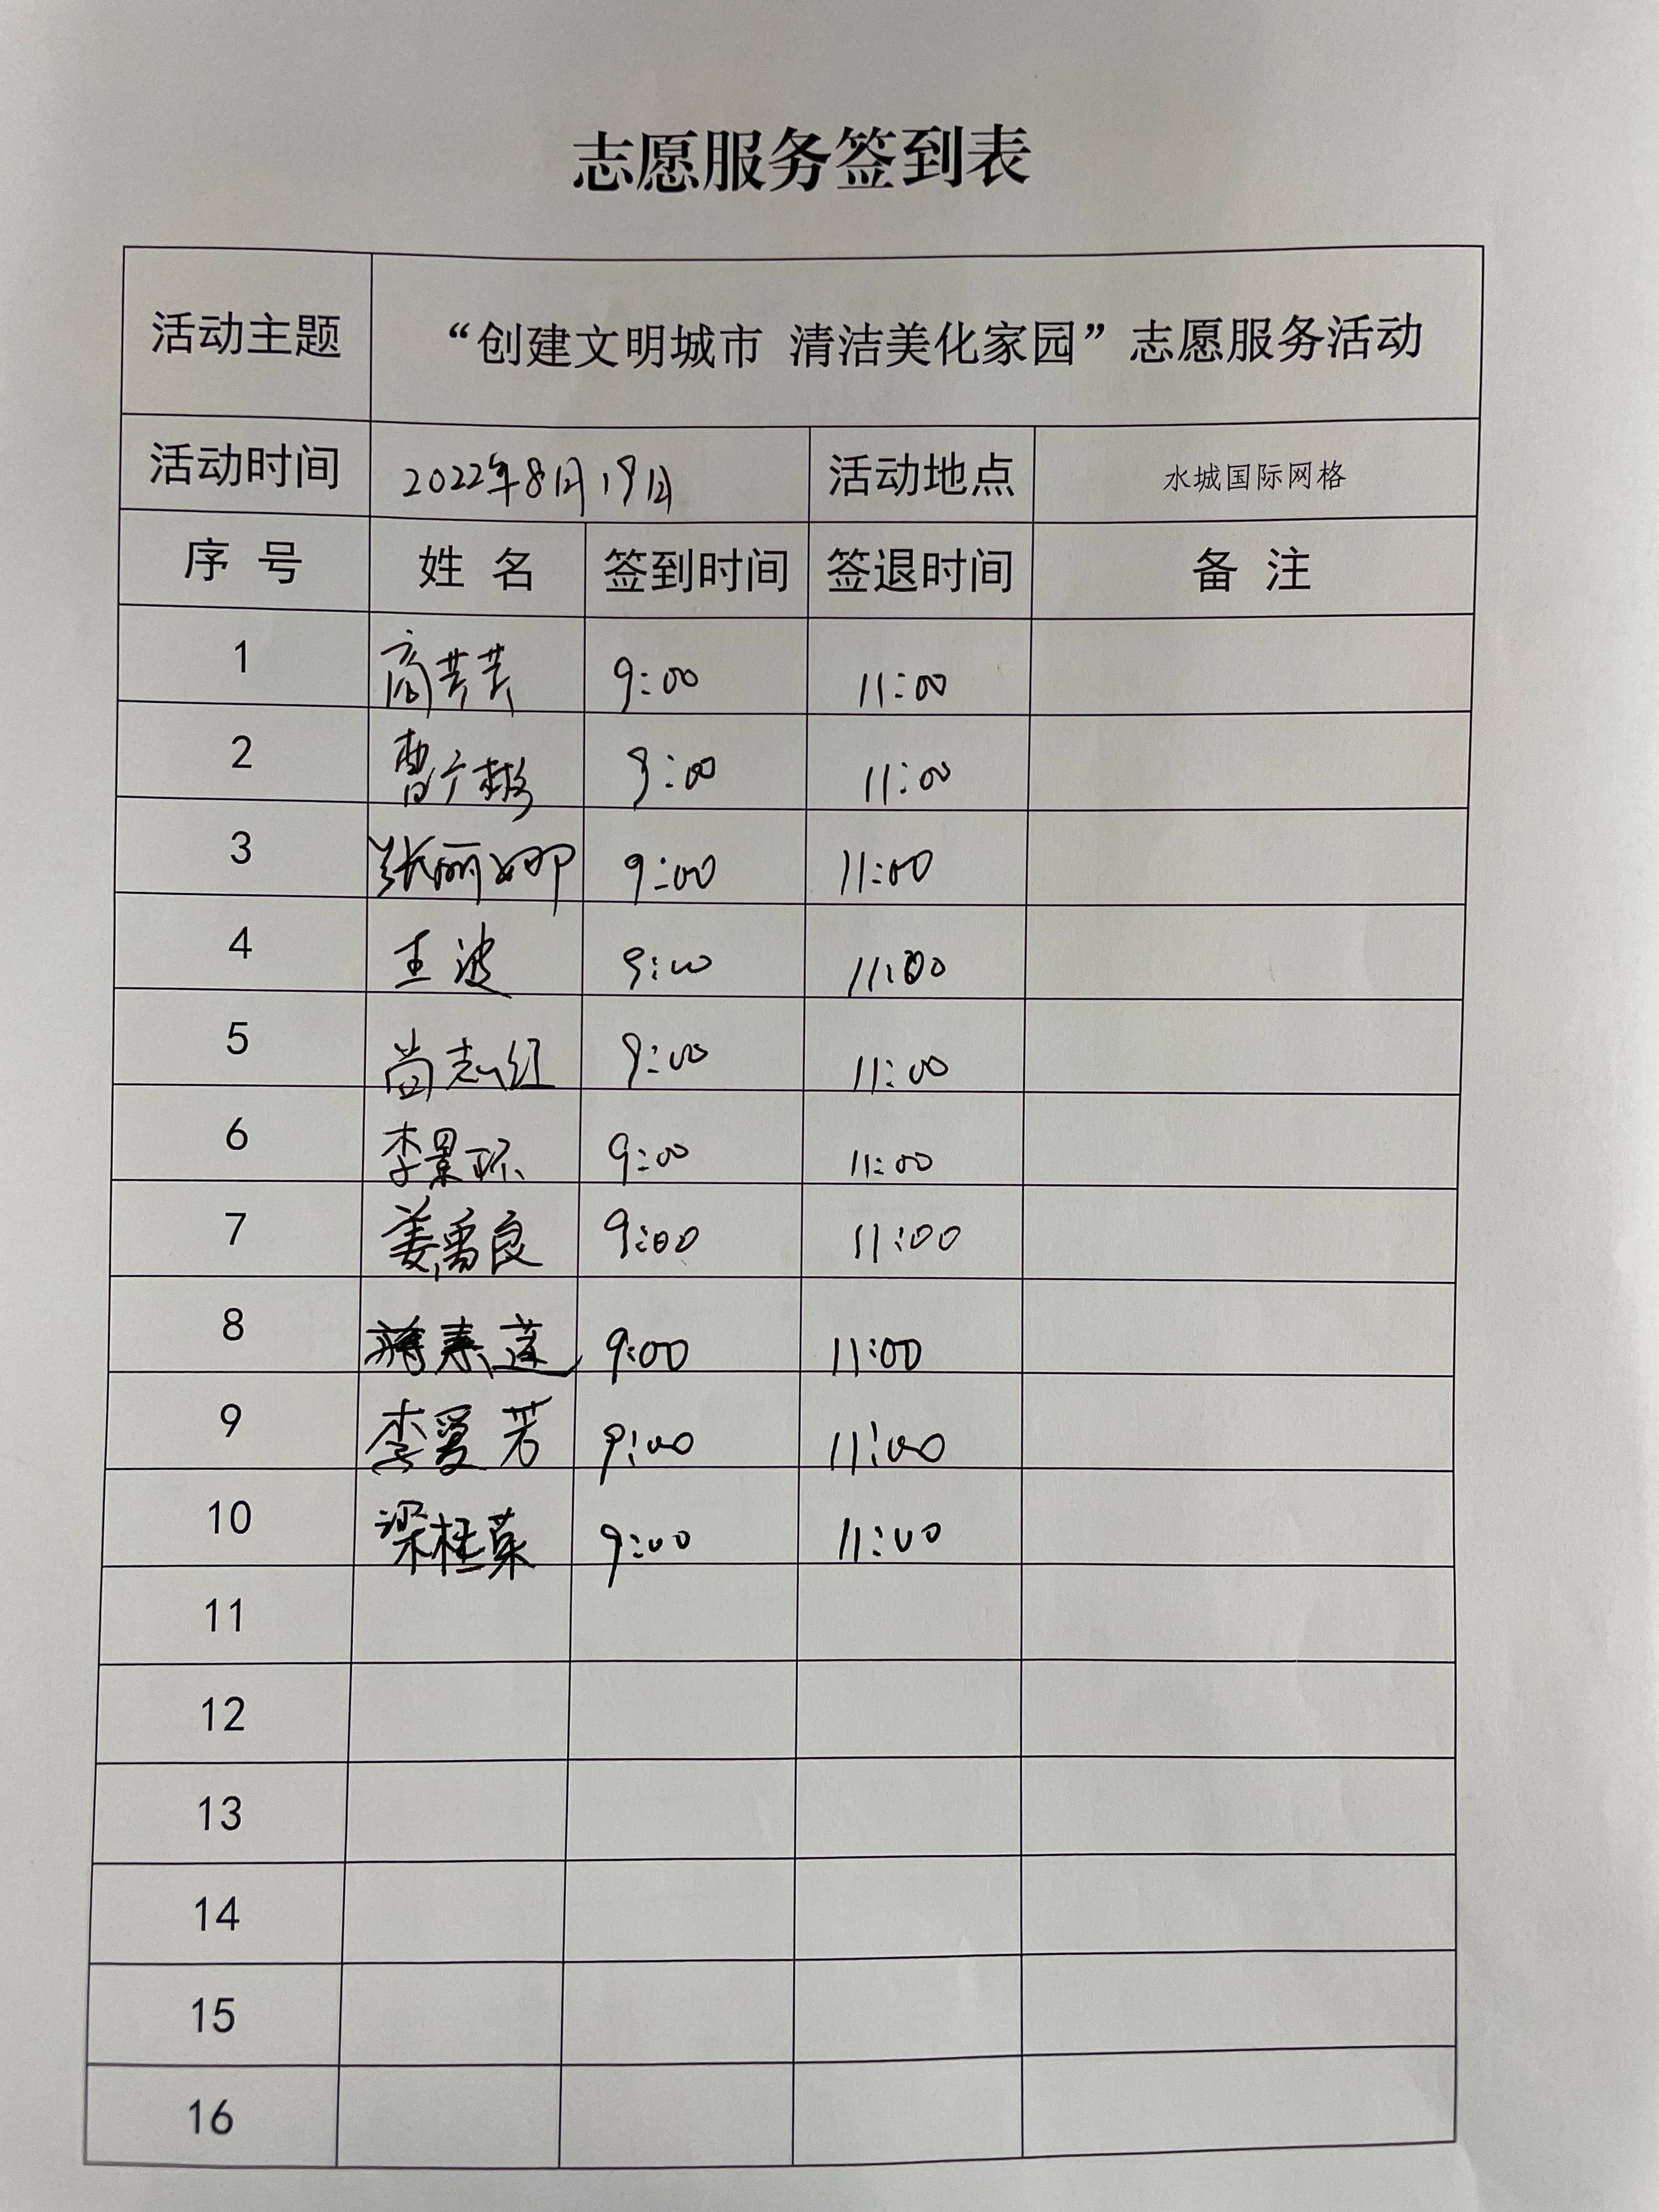 志愿服务签到表
活动主题 “创建文明城市 清洁美化家园”志愿服务活动
活动时间 2022年8月19日 活动地点 水城国际网格
序 号 姓 名 签到时间 签退时间 备 注
1 商芸芸 9:00 11:00
2 曹广彬 9:00 11:00
3 张丽娜 9:00 11:00
4 王波 9:00 11:00
5 尚志红 9:00 11:00
6 李景环 9:00 11:00
7 姜禹良 9:00 11:00
8 莲 9:00 11:00
9 李爱芳 9:00 11:00
10 梁桂菊 9:00 11:00
11
12
13
14
15
16